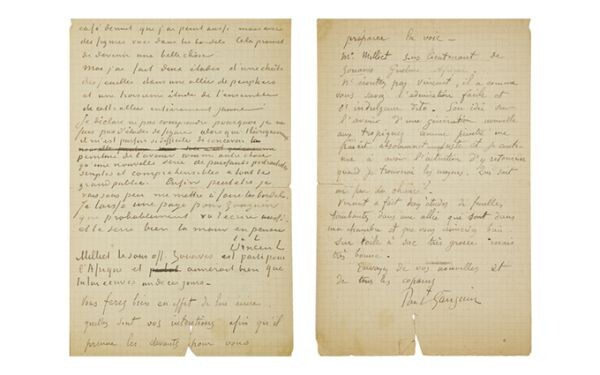 café de nuit que j'ai peint aussi mais avec
des figures vues dans les bordels. Cela promet
de devenir une belle chose.
Moi j'ai fait deux études d'une chûte
des feuilles dans une allée de peupliers
et une troisième étude de l'ensemble
de cette allée entièrement jaune.
Je déclare ne pas comprendre pourquoi je ne
fais pas d'études de figure alors que théoriquement
il m'est parfois si difficile de concevoir la
peinture de l'avenir comme autre chose
qu'une nouvelle série de puissants portraitistes
simples et compréhensibles à tout le
grand public. Enfin peut-être je
vais sous peu me mettre à faire les bordels.
Je laisse une page pour Gauguin
qui probablement va t'écrire aussi
et te serre bien la main en pensée
t. à t.
Vincent
Milliet le sous off. Zouaves est parti pour
l'Afrique et aimerait bien que
tu lui écrives un de ces jours.
Vous ferez bien en effet de lui écrire
quelles sont vos intentions afin qu'il
prenne les devants pour vous
préparer la voie –
Mr Milliet sous lieutenant de
Zouaves Guelma Afrique.
N'écoutez pas Vincent, il a comme
vous savez l'admiration facile et
l'indulgence dito. Son idée sur
l'avenir d'une génération nouvelle
aux tropiques comme peintre me
paraît absolument juste et je continue
à avoir l'intention d'y retourner
quand je trouverai les moyens. Qui sait
un peu de chance?
Vincent a fait deux études de feuilles
tombantes dans une allée qui sont dans
ma chambre et que vous aimeriez bien
sur toile à sac très grosse mais
très bonne.
Envoyez de vos nouvelles et
de tous les copains
Paul Gauguin